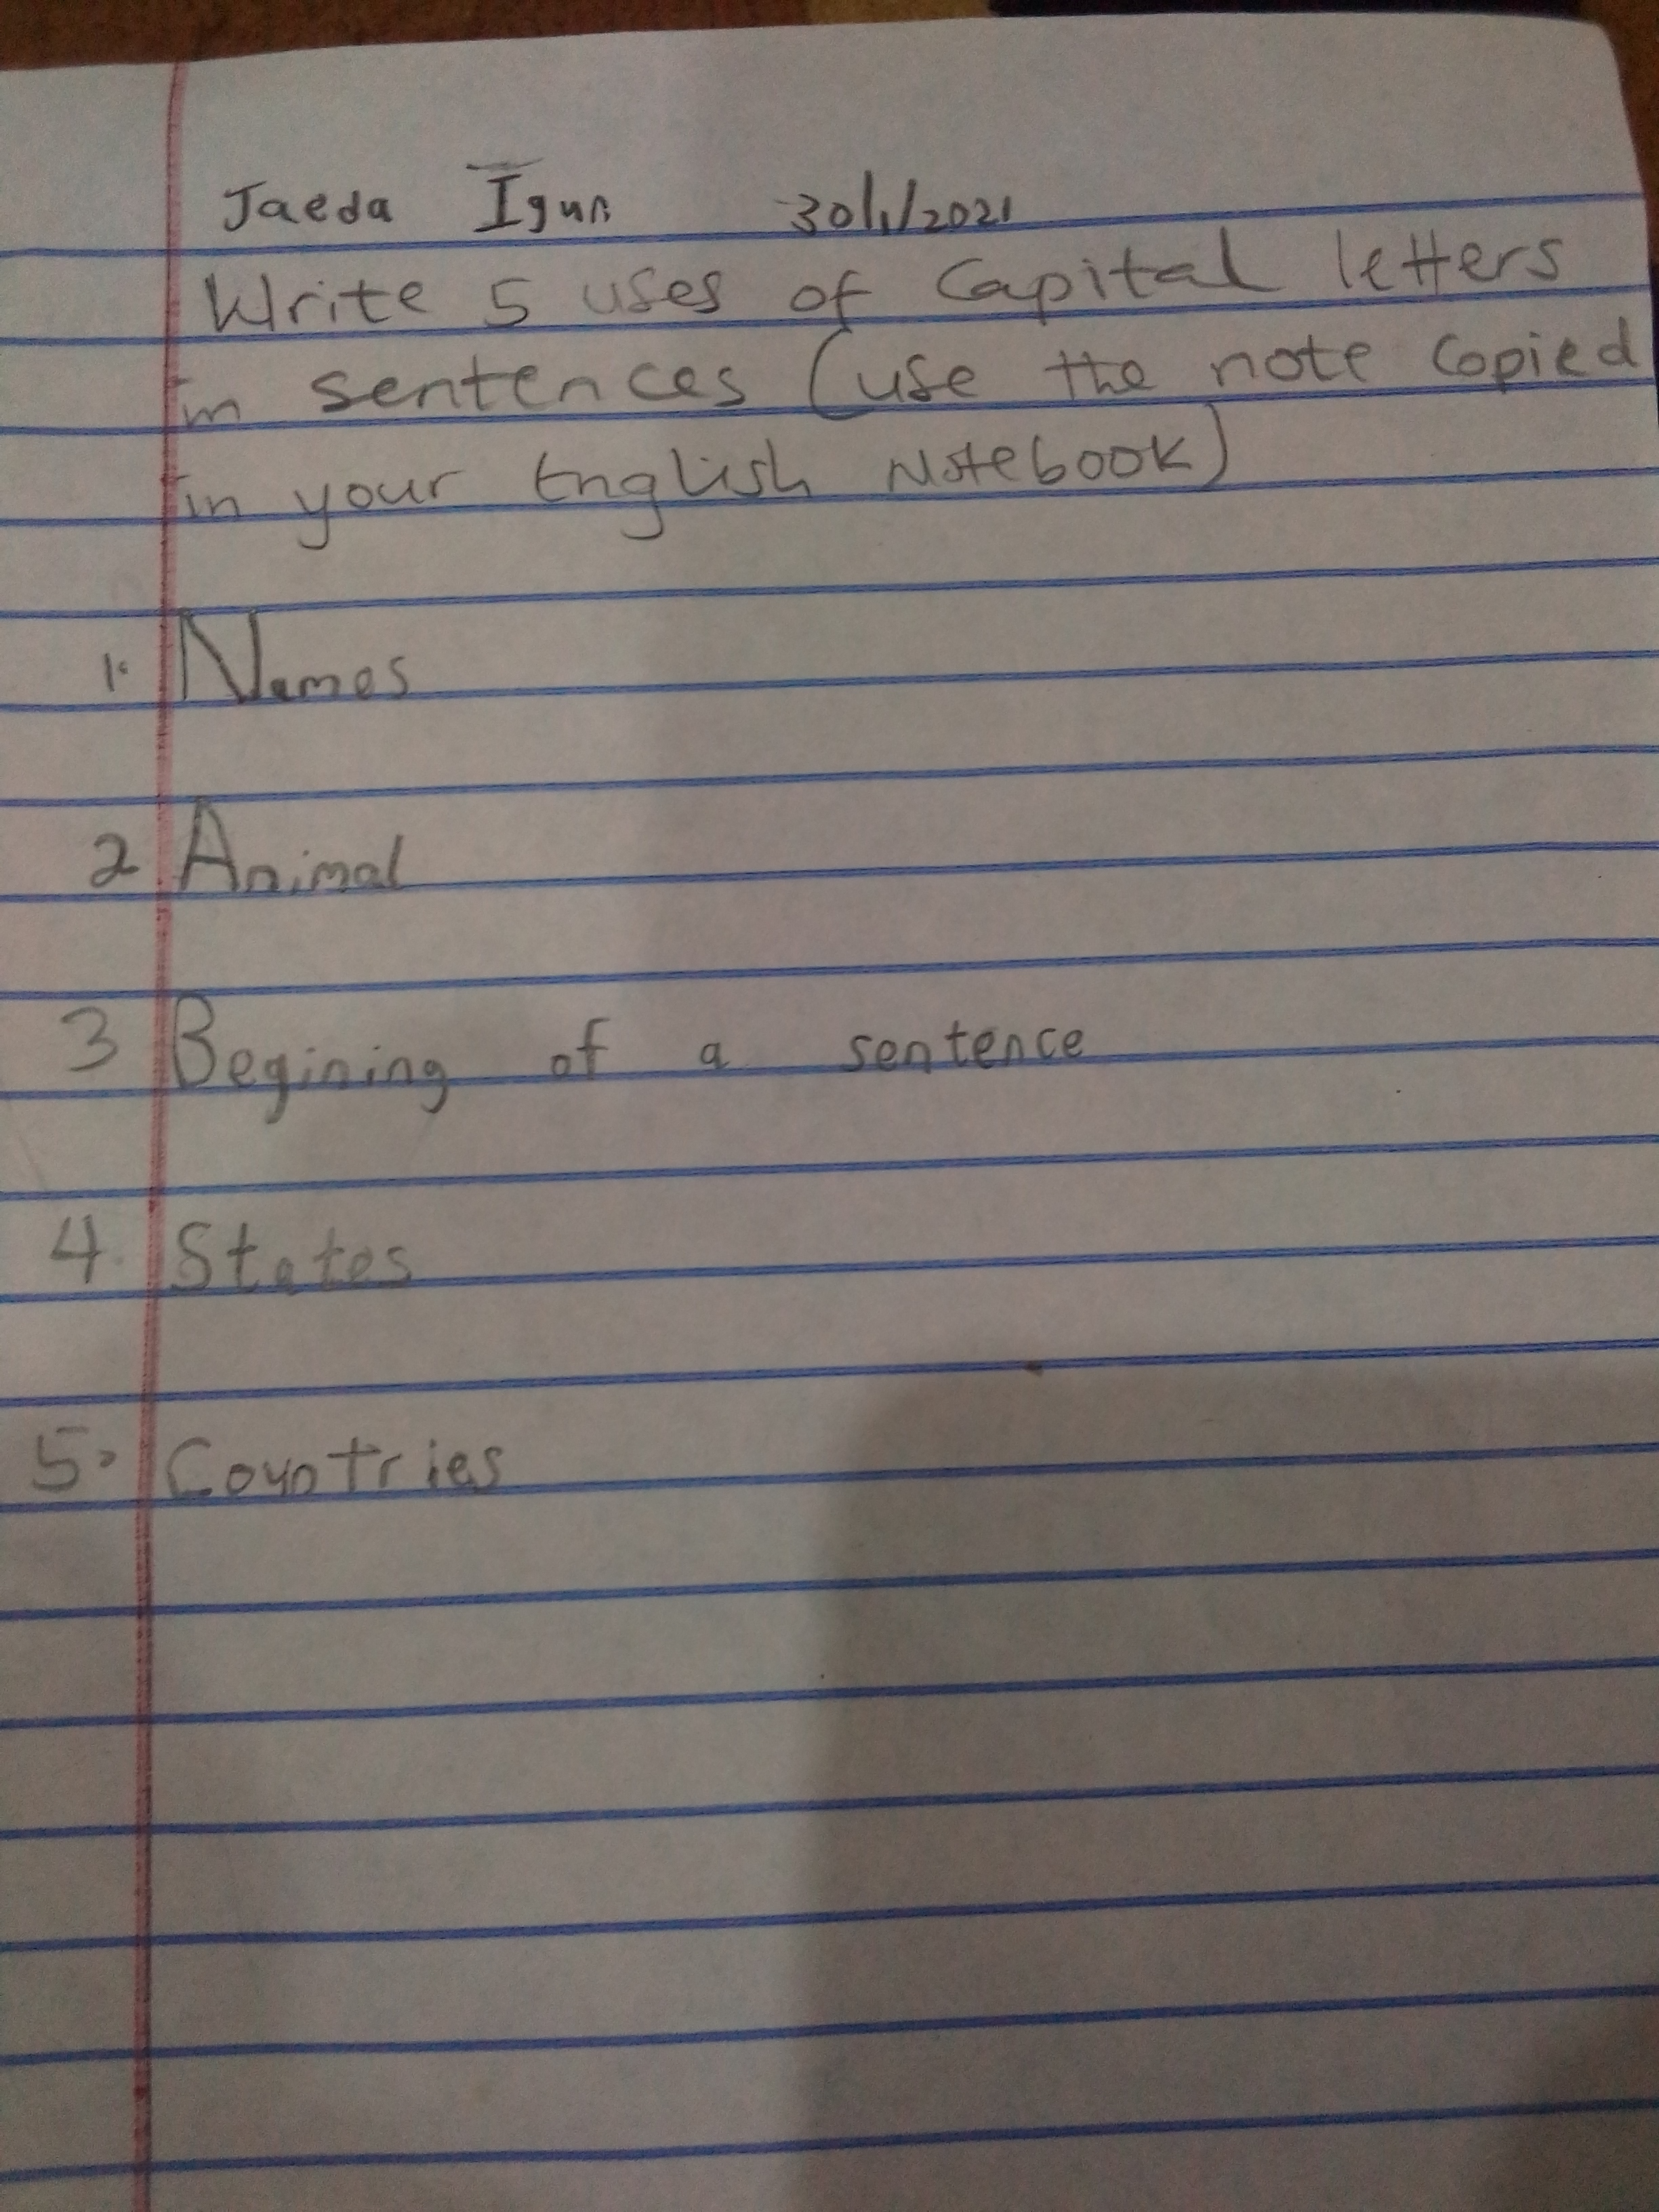 Jaeda Igun 30/1/2021
Write 5 uses of Capital letters
in sentences (use the note copied
in your English Notebook)
1. Names
2 Animal
3 Begining of a sentence
4. States
5. Countries